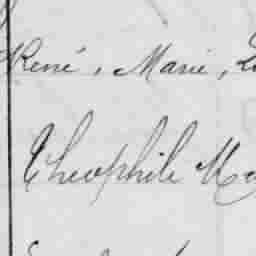 René, Marie,
Théophile